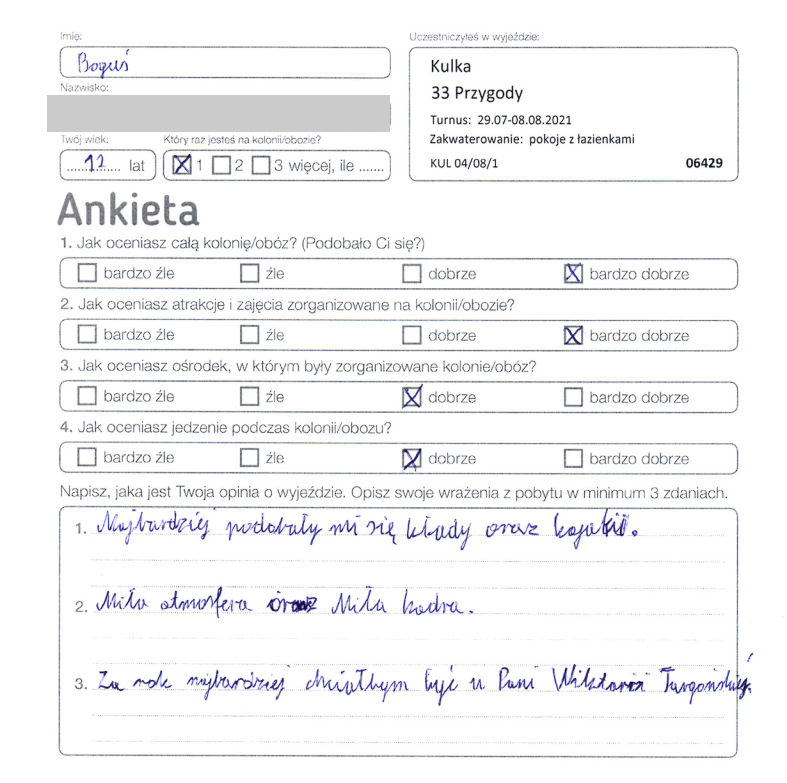 Imię:
Boguś
Nazwisko:
Twój wiek:
12 lat
Który raz jesteś na kolonii/obozie?
1 2 3 więcej, ile .......
Uczestniczyłeś w wyjeździe:
Kulka
33 Przygody
Turnus: 29.07-08.08.2021
Zakwaterowanie: pokoje z łazienkami
KUL 04/08/1 06429
Ankieta
1. Jak oceniasz całą kolonię/obóz? (Podobało Ci się?)
bardzo źle źle dobrze bardzo dobrze
2. Jak oceniasz atrakcje i zajęcia zorganizowane na kolonii/obozie?
bardzo źle źle dobrze bardzo dobrze
3. Jak oceniasz ośrodek, w którym były zorganizowane kolonie/obóz?
bardzo źle źle dobrze bardzo dobrze
4. Jak oceniasz jedzenie podczas kolonii/obozu?
bardzo źle źle dobrze bardzo dobrze
Napisz, jaka jest Twoja opinia o wyjeździe. Opisz swoje wrażenia z pobytu w minimum 3 zdaniach.
1. Najbardziej podobały mi się kłady oraz kajaki.
2. Miła atmosfera oraz Miła kadra.
3. Za rok najbardziej chciałbym być u Pani Wiktorii